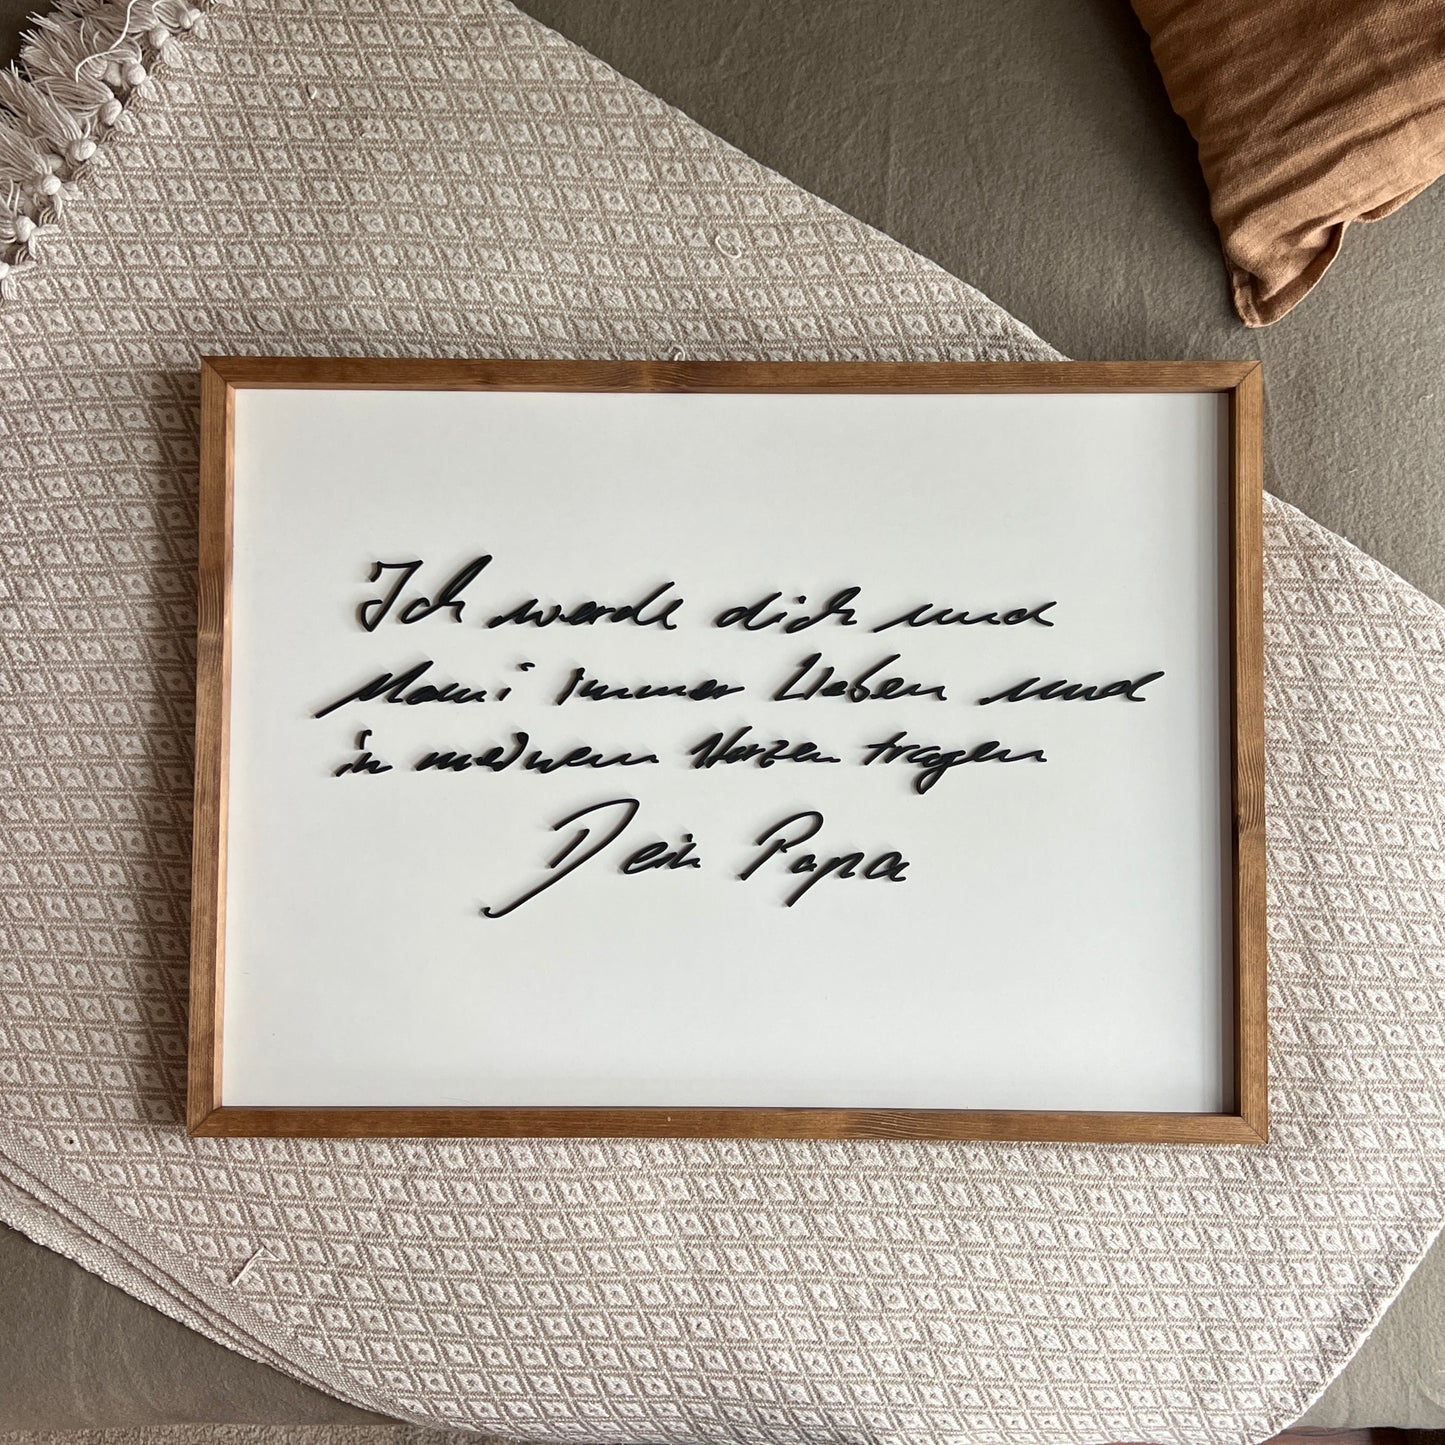 Ich werde dich und
Mami immer Lieben und
in meinem Herzen tragen
Dein Papa